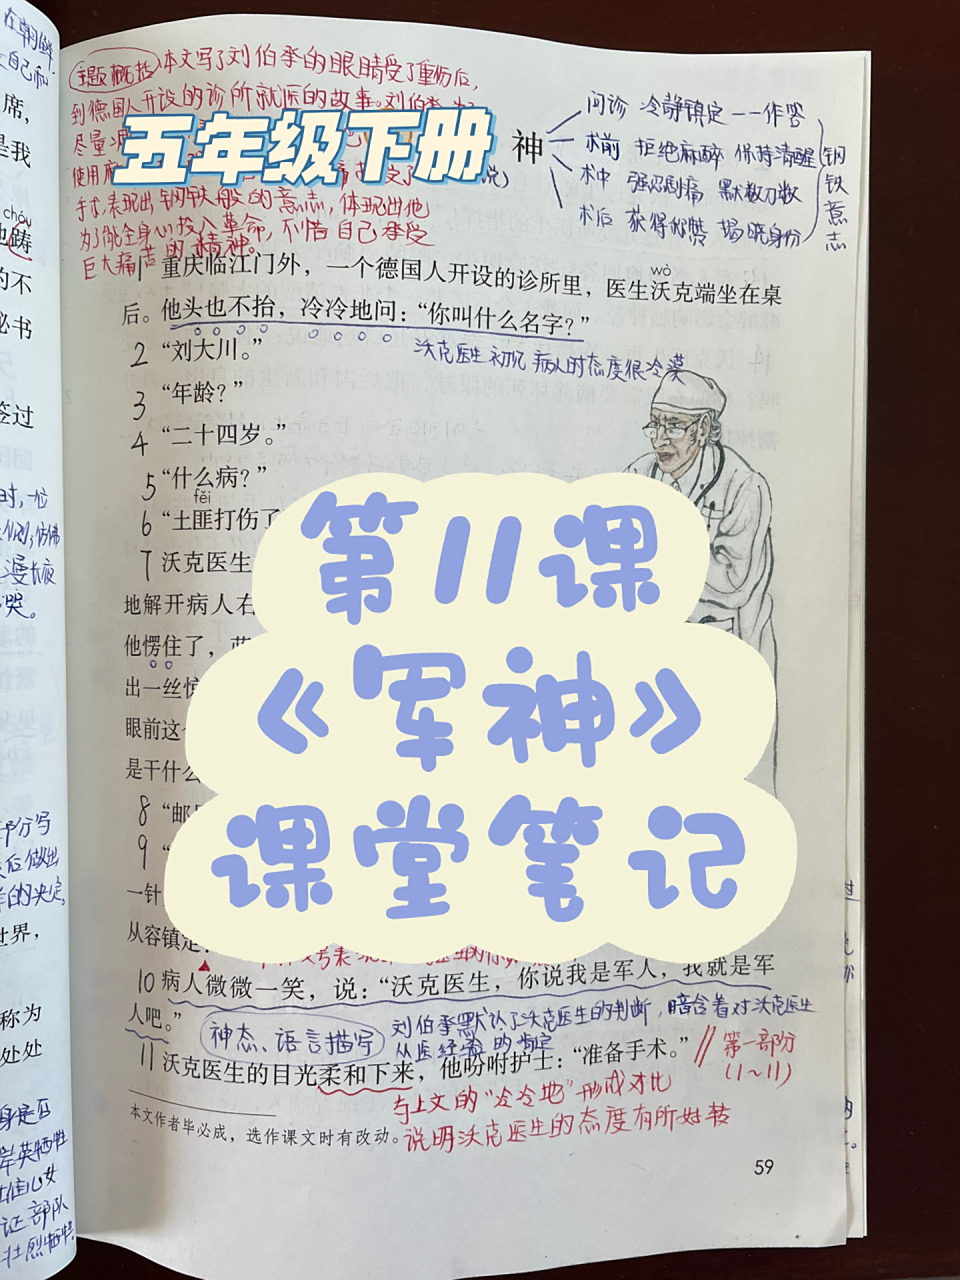 在朝鲜
自己和
席,
是我
chóu
踌
的不
秘书
签过
时,一位
漫长夜
哭。
部分写
后做出
的决定。
世界,
称为
处处
证部队
壮烈牺牲
主题概括 本文写了刘伯承的眼睛受了重伤后,
到德国人开设的诊所就医的故事。刘伯承为了
尽量
使用
手术,表现出钢铁般的意志,体现出他
为了能全身心投入革命,不惜自己承受
巨大痛苦的精神。
五年级下册
神
问诊 冷静镇定——作答
术前 拒绝麻醉 保持清醒
术中 强忍剧痛 默数刀数
术后 获得称赞 揭晓身份
钢铁意志
重庆临江门外,一个德国人开设的诊所里,医生沃克端坐在桌
wò
后。他头也不抬,冷冷地问:“你叫什么名字?”
沃克医生初见病人时态度很冷漠
2 “刘大川。”
3 “年龄?”
4 “二十四岁。”
5 “什么病?”
fěi
6 “土匪打伤了
7 沃克医生
地解开病人右
他愣住了,
出一丝惊
眼前这
是干什么
8 “邮
9 “
一针
从容镇定
第11课
《军神》
课堂笔记
10 病人微微一笑,说:“沃克医生,你说我是军人,我就是军
人吧。”
神态、语言描写
刘伯承默认了沃克医生的判断,暗含着对沃克医生
从医经验的肯定
11 沃克医生的目光柔和下来,他吩咐护士:“准备手术。”
第一部分
(1~11)
与上文的“冷冷地”形成对比
说明沃克医生的态度有所好转
本文作者毕必成,选作课文时有改动。
59